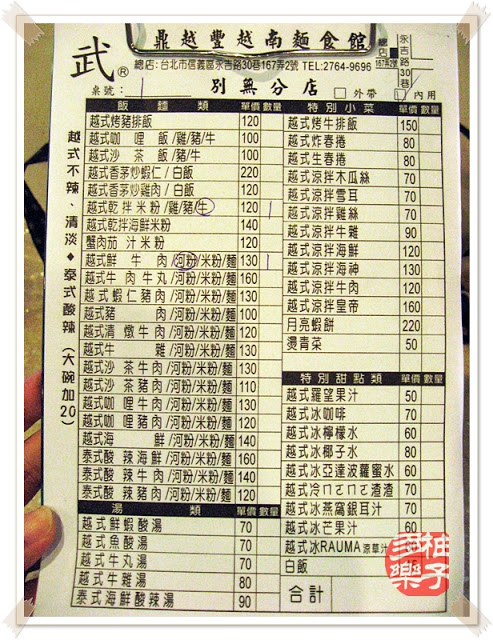 鼎越豐越南麵食館
武®
總店:台北市信義區永吉路30巷167弄2號 TEL:2764-9696
總店
167弄2號
永吉路30巷
桌號:
別無分店
□外帶 □內用
越式不辣、清淡◆泰式酸辣(大碗加20)
飯 麵 類 單價 數量
越式烤豬排飯 120
越式咖哩飯/雞/豬/牛 100
越式沙茶飯/豬/牛 100
越式香茅炒蝦仁/白飯 220
越式香茅炒雞肉/白飯 120
越式乾拌米粉/雞/豬/牛 120 1
越式乾拌海鮮米粉 140
蟹肉茄汁米粉 120
越式鮮牛肉/河粉/米粉/麵 130 1
越式牛肉牛丸/河粉/米粉/麵 160
越式蝦仁豬肉/河粉/米粉/麵 130
越式豬肉/河粉/米粉/麵 100
越式清燉牛肉/河粉/米粉/麵 130
越式牛雜/河粉/米粉/麵 130
越式沙茶牛肉/河粉/米粉/麵 130
越式沙茶豬肉/河粉/米粉/麵 110
越式咖哩牛肉/河粉/米粉/麵 130
越式咖哩豬肉/河粉/米粉/麵 120
越式海鮮/河粉/米粉/麵 140
泰式酸辣海鮮/河粉/米粉/麵 160
泰式酸辣牛肉/河粉/米粉/麵 140
泰式酸辣豬肉/河粉/米粉/麵 120
湯 類 單價 數量
越式鮮蝦酸湯 70
越式魚酸湯 70
越式牛丸湯 70
越式牛雜湯 80
泰式海鮮酸辣湯 90
特別小菜 單價 數量
越式烤牛排飯 150
越式炸春捲 80
越式生春捲 80
越式涼拌木瓜絲 70
越式涼拌雪耳 70
越式涼拌雞絲 70
越式涼拌牛雜 90
越式涼拌海鮮 120
越式涼拌海神 130
越式涼拌牛肉 120
越式涼拌皇帝 160
月亮蝦餅 220
燙青菜 50
特別甜點類 單價 數量
越式羅望果汁 50
越式冰咖啡 70
越式冰檸檬水 60
越式冰椰子水 80
越式冰亞達波羅蜜水 60
越式冷ㄇㄛㄇㄛ渣渣 70
越式冰燕窩銀耳汁 70
越式冰芒果汁 60
越式冰RAUMA涼草汁
白飯
合計